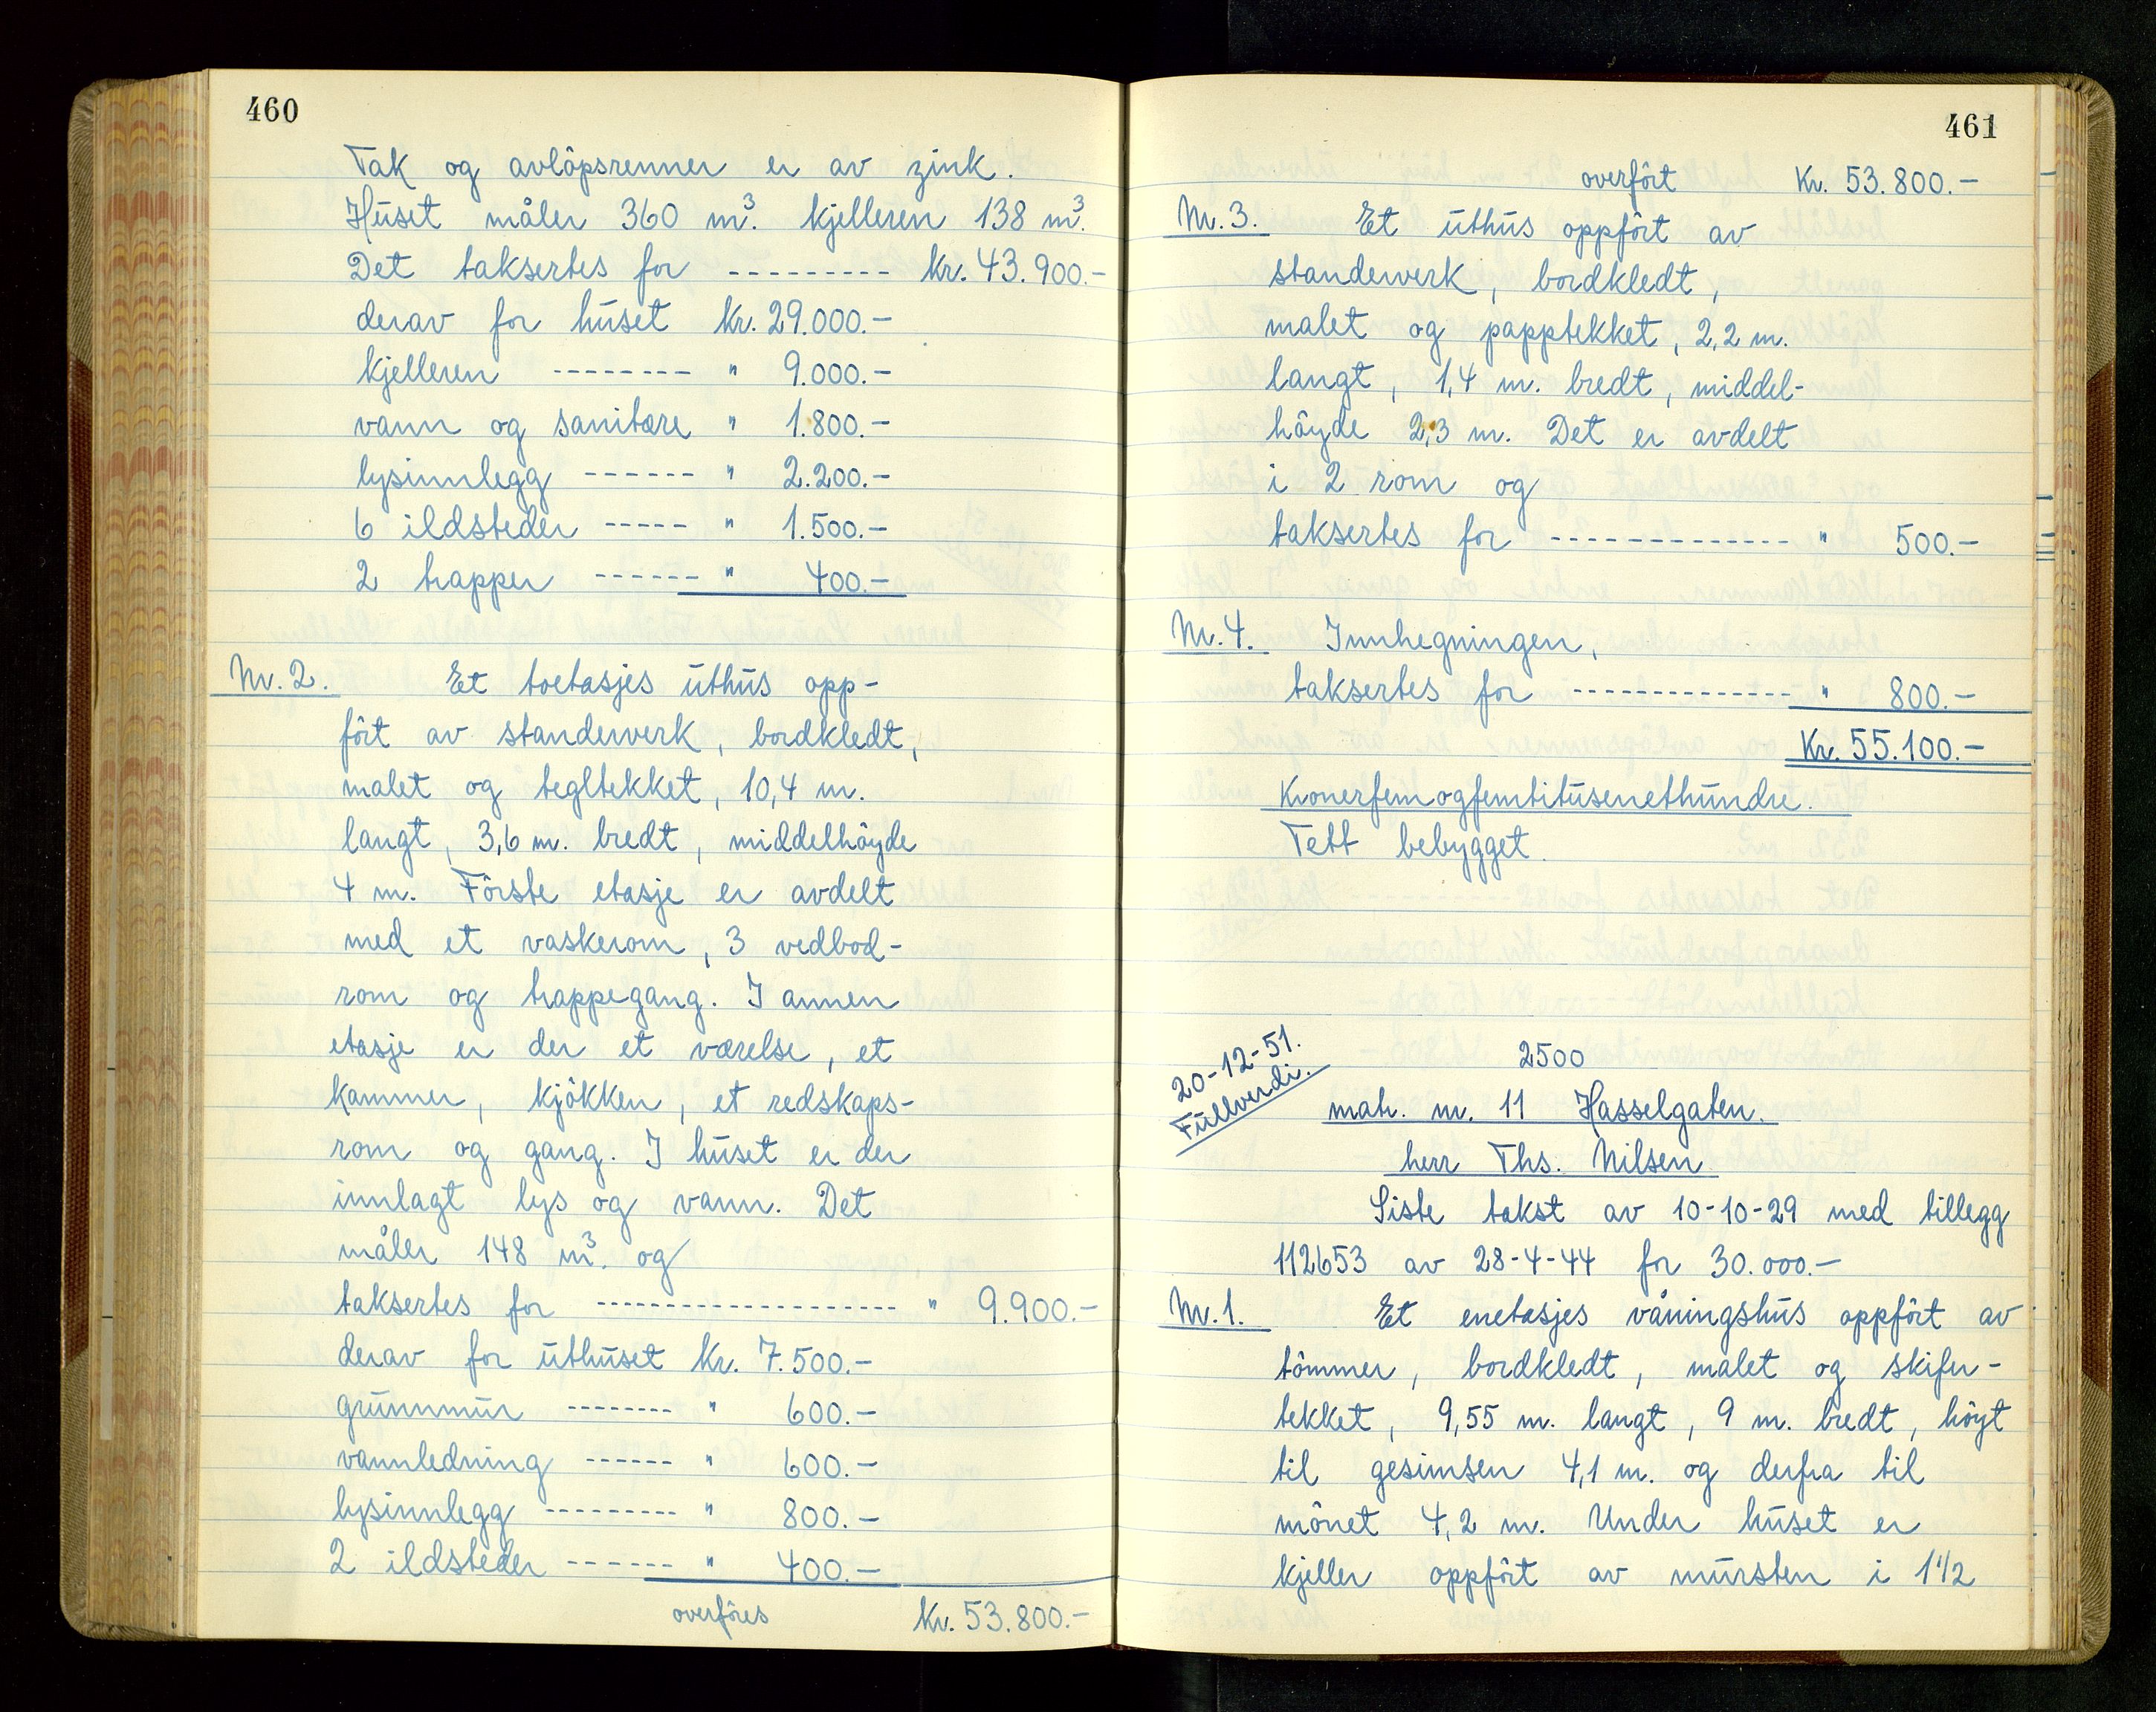 460
Tak og avlôpsrenner er av zink.
Húset måler 360 m³. kjelleren 138 m³.
Det taksertes for --------- kr. 43.900.-
derav for húset kr. 29.000.-
kjelleren -------- " 9.000.-
vann og sanitære " 1.800.-
lysinnlegg ------ " 2.200.-
6 ildsteder ----- " 1.500.-
2 trapper ------ " 400.-
Nr. 2. Et toetasjes úthús opp-
fôrt av standerverk, bordkledt,
malet og tegltekket, 10,4 m.
langt, 3,6 m. bredt, middelhôyde
4 m. Fôrste etasje er avdelt
med et vaskerom, 3 vedbod-
rom og trappegang. I annen
etasje er der et værelse, et
kammer, kjôkken, et redskaps-
rom og gang. I húset er der
innlagt lys og vann. Det
måler 148 m³. og
taksertes for -------------------- " 9.900.-
derav for úthúset Kr. 7.500.-
grúnnmúr -------- " 600.-
vannledning ------ " 600.-
lysinnlegg --------- " 800.-
2 ildsteder ------- " 400.-
overfôres Kr. 53.800.-
461
overfôrt Kr. 53.800.-
Nr. 3. Et úthús oppfôrt av
standerverk, bordkledt,
malet og papptekket, 2,2 m.
langt, 1,4 m. bredt, middel-
hôyde 2,3 m. Det er avdelt
i 2 rom og
taksertes for -------------- " 500.-
Nr. 4. Innhegningen,
taksertes for -------------- " 800.-
Kr. 55.100.-
Kronerfemogfemtitúsenethúndre.
Tett bebygget.
20-12-51.
Fúllverdi.
2500
matr. nr. 11 Hasselgaten.
herr Ths. Nilsen
Siste takst av 10-10-29 med tillegg
112653 av 28-4-44 for 30.000.-
Nr. 1. Et enetasjes våningshús oppfôrt av
tômmer, bordkledt, malet og skifer-
tekket, 9,55 m. langt, 9 m. bredt, hôyt
til gesimsen 4,1 m. og derfra til
mônet 4,2 m. Under húset er
kjeller oppfôrt av múrsten i 1 1/2